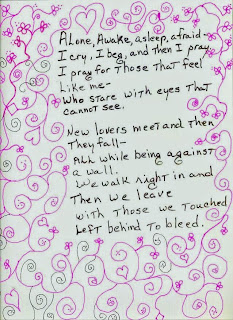 ALone, Awake, asleep, afraid-
I cry, I beg, and then I pray.
I pray for Those That feel
Like me-
Who stare with eyes that
cannot see.
New lovers meet and then
They fall-
ALL while being against
a wall.
We walk right in and
Then we leave
with those we touched
Left behind To bleed.